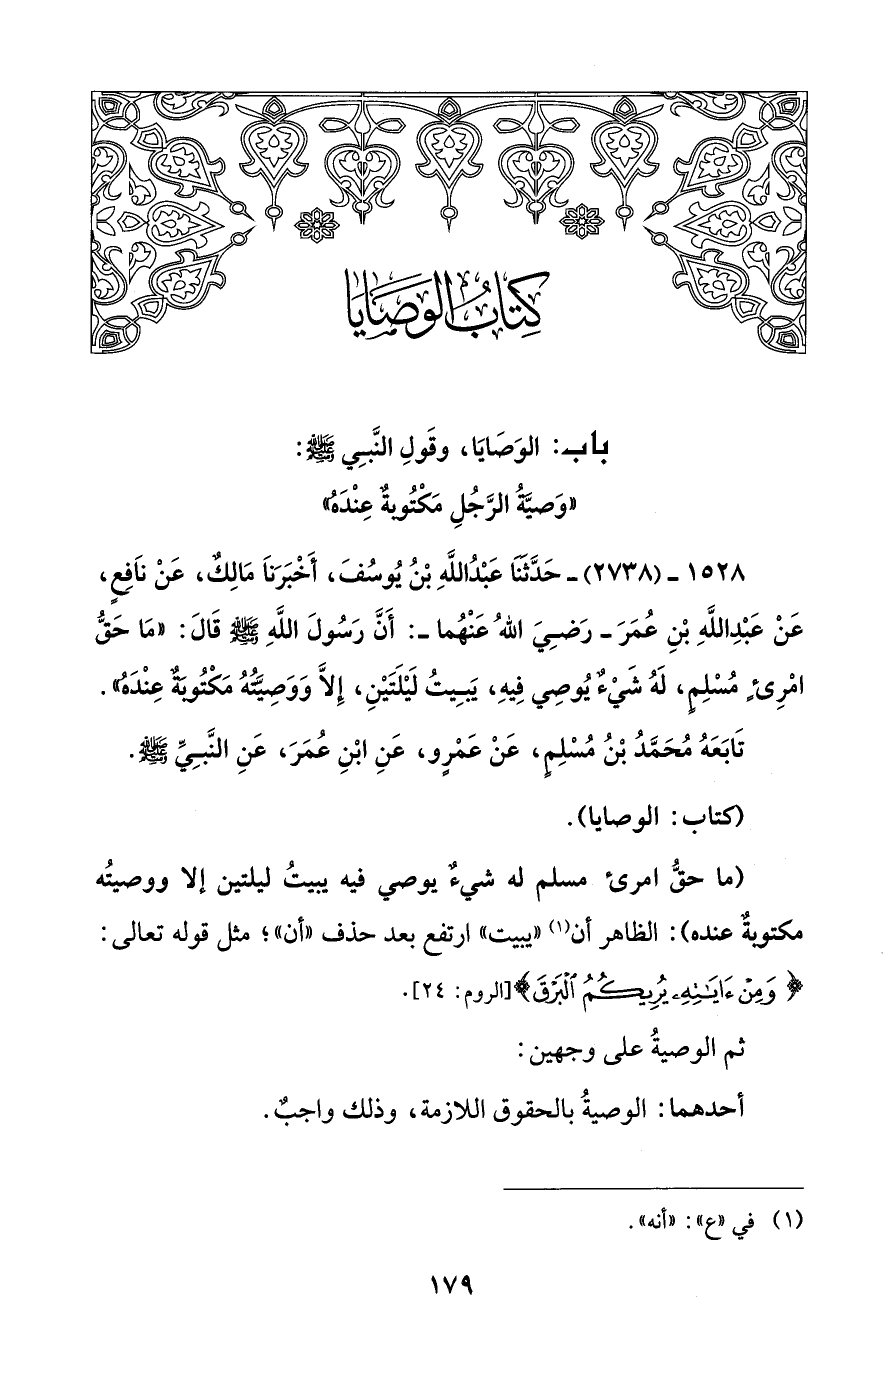 كِتَابُ الوَصَايَا
باب: الوَصَايَا، وقَولِ النَّبِي ﷺ:
«وَصيَّةُ الرَّجُلِ مَكْتُوبةٌ عِنْدَهُ»
١٥٢٨ ـ (٢٧٣٨) ـ حَدَّثَنَا عَبْدُاللَّهِ بْنُ يُوسُفَ، أَخْبَرَنَا مَالِكٌ، عَنْ نَافِعٍ،
عَنْ عَبْدِاللَّهِ بْنِ عُمَرَ ـ رَضيَ اللهُ عَنْهُما ـ: أَنَّ رَسُولَ اللَّهِ ﷺ قَالَ: «مَا حَقُّ
امْرِئٍ مُسْلِمٍ، لَهُ شَيْءٌ يُوصِي فِيهِ، يَبِيتُ لَيْلَتَيْنِ، إِلاَّ وَوَصِيَّتُهُ مَكْتُوبَةٌ عِنْدَهُ».
تَابَعَهُ مُحَمَّدُ بْنُ مُسْلِمٍ، عَنْ عَمْرٍو، عَنِ ابْنِ عُمَرَ، عَنِ النَّبِيِّ ﷺ.
(كتاب: الوصايا).
(ما حقُّ امرئ مسلم له شيءٌ يوصي فيه يبيتُ ليلتين إلا ووصيتُه
مكتوبةٌ عنده): الظاهر أن(١) «يبيت» ارتفع بعد حذف «أن»؛ مثل قوله تعالى:
﴿وَمِنْ ءَايَٰتِهِۦ يُرِيكُمُ ٱلْبَرْقَ﴾[الروم: ٢٤].
ثم الوصيةُ على وجهين:
أحدهما: الوصيةُ بالحقوق اللازمة، وذلك واجبٌ.
(١) في «ع»: «أنه».
١٧٩